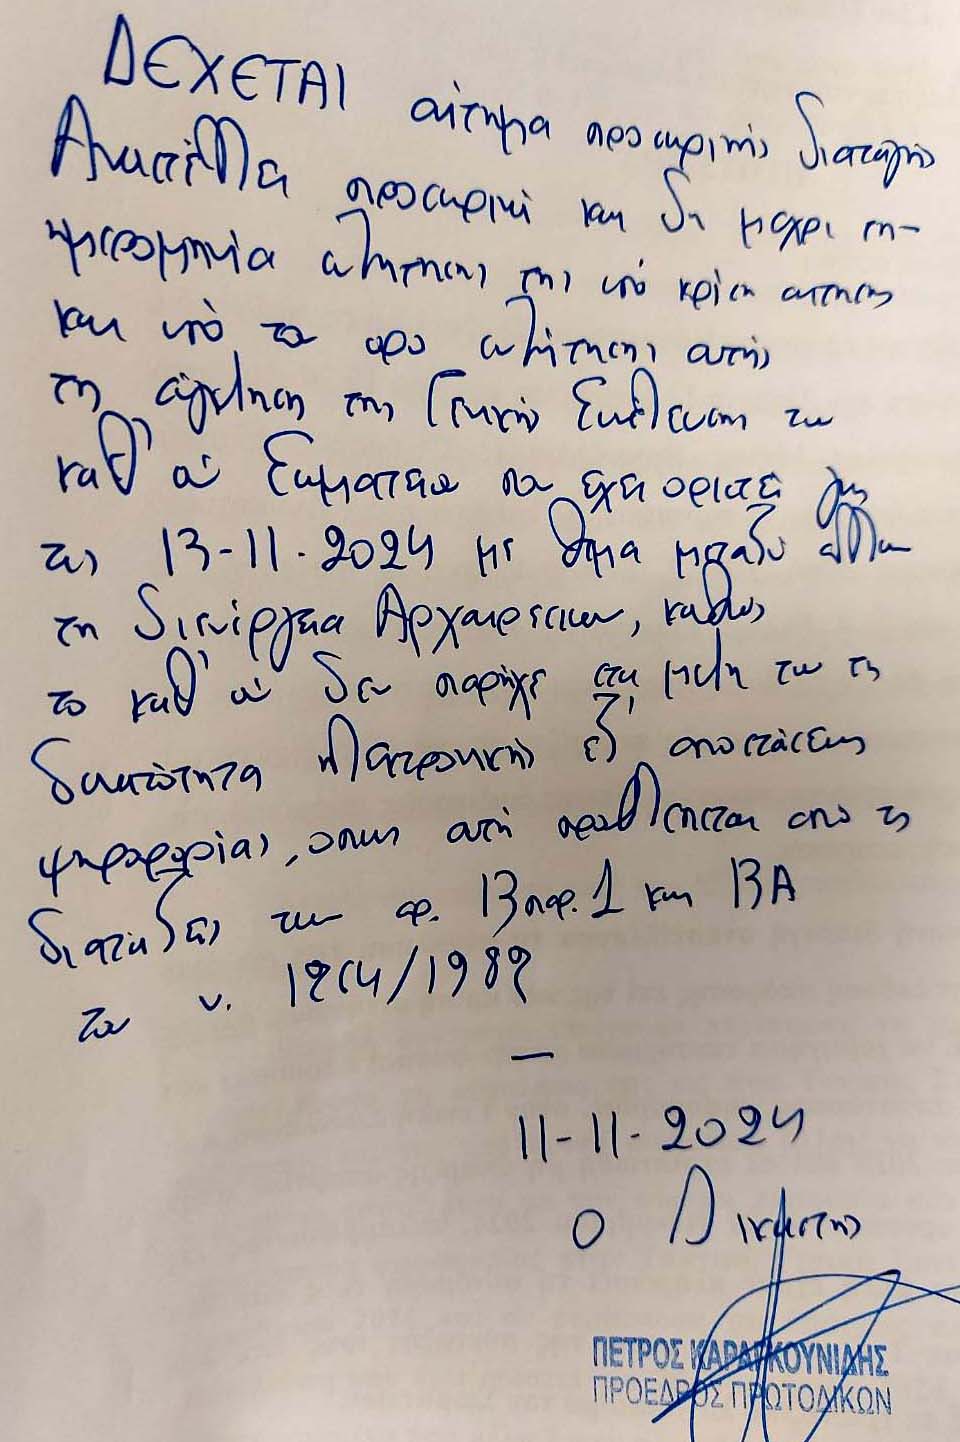 ΔΕΧΕΤΑΙ αίτημα προσωρινής διαταγής
Αναστέλλει προσωρινά και δη μέχρι τη-
ημερομηνία συζήτησης της υπό κρίση αίτησης
και υπό τον όρο συζήτησης αυτής
τη σύγκληση της Γενικής Συνέλευσης του
καθ' ου Σωματείου που έχει οριστεί για
τις 13-11-2024 με θέμα μεταξύ άλλων
τη διενέργεια Αρχαιρεσιών, καθώς
το καθ' ου δεν παρήχε στα μέλη του τη
δυνατότητα ηλεκτρονικής εξ' αποστάσεως
ψηφοφορίας, όπως αυτή προβλέπεται από τις
διατάξεις των αρ. 13 παρ. 1 και 13Α
του ν. 1264/1982
—
11-11-2024
Ο Δικαστής
ΠΕΤΡΟΣ ΚΑΡΑΓΚΟΥΝΙΔΗΣ
ΠΡΟΕΔΡΟΣ ΠΡΩΤΟΔΙΚΩΝ